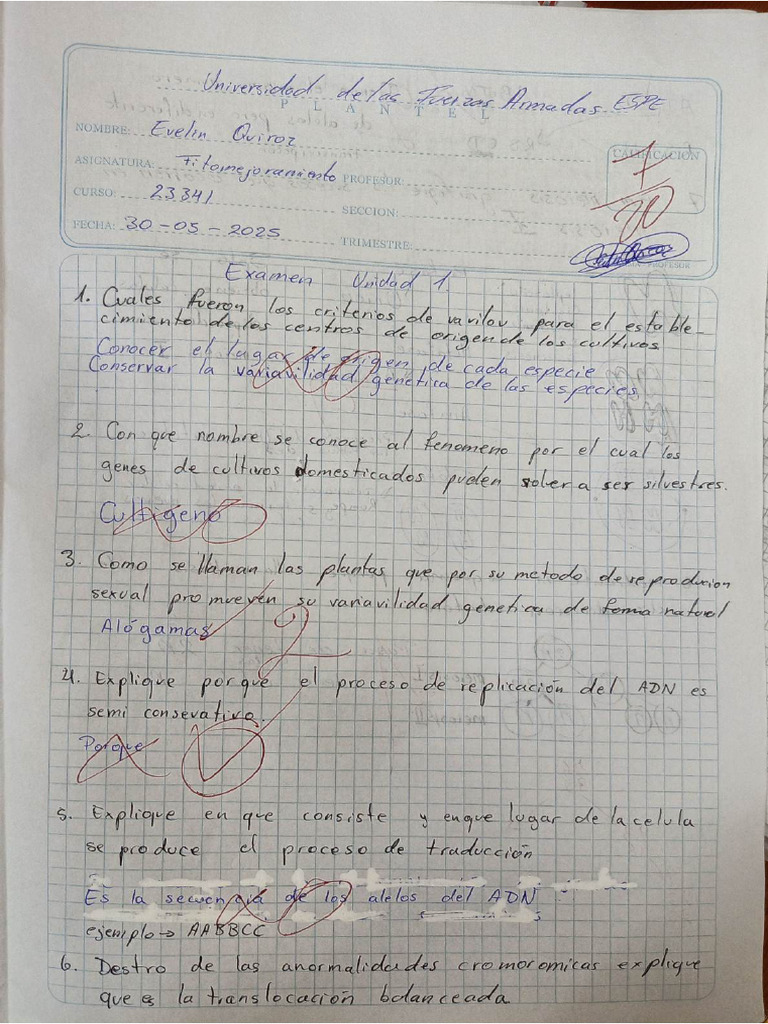 Universidad de las Fuerzas Armadas ESPE
PLANTEL
NOMBRE: Evelin Quiroz
ASIGNATURA: Fitomejoramiento PROFESOR:
CALIFICACIÓN
7/20
CURSO: 23341
SECCION:
FECHA: 30-05-2025
TRIMESTRE:
PROFESOR
Examen Unidad 1
1. Cuales fueron los criterios de vavilov para el estable-
cimiento de los centros de origen de los cultivos
Conocer el lugar de origen de cada especie
Conservar la variavilidad genetica de las especies
2. Con que nombre se conoce al fenomeno por el cual los
genes de cultivos domesticados pueden volver a ser silvestres.
Cultigeno
3. Como se llaman las plantas que por su metodo de reproducion
sexual promueven su variavilidad genetica de forma natural
Alógamas
2
4. Explique por que el proceso de replicación del ADN es
semi consevativo.
Porque
5. Explique en que consiste y en que lugar de la celula
se produce el proceso de traducción
Es la secuencia de los alelos del ADN
ejemplo → AABBCC
6. Destro de las anormalidades cromoromicas explique
que es la translocación balanceada